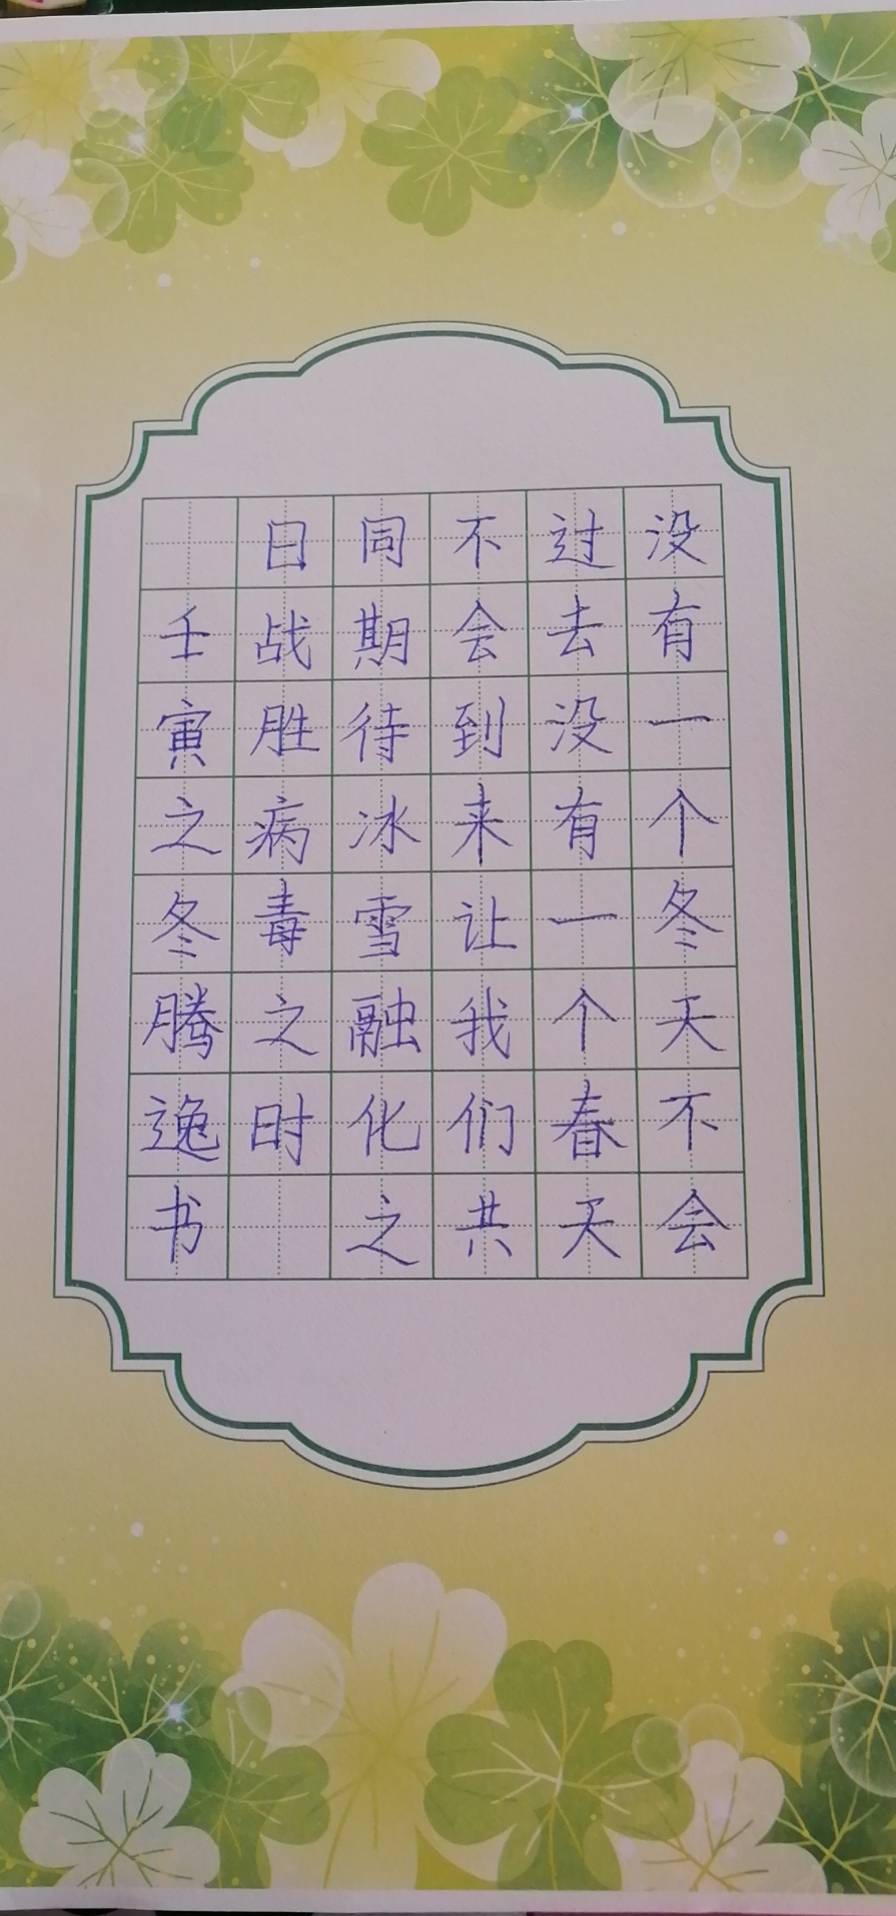 没有一个冬天不会
过去没有一个春天
不会到来让我们共
同期待冰雪融化之
日战胜病毒之时
壬寅之冬腾逸书